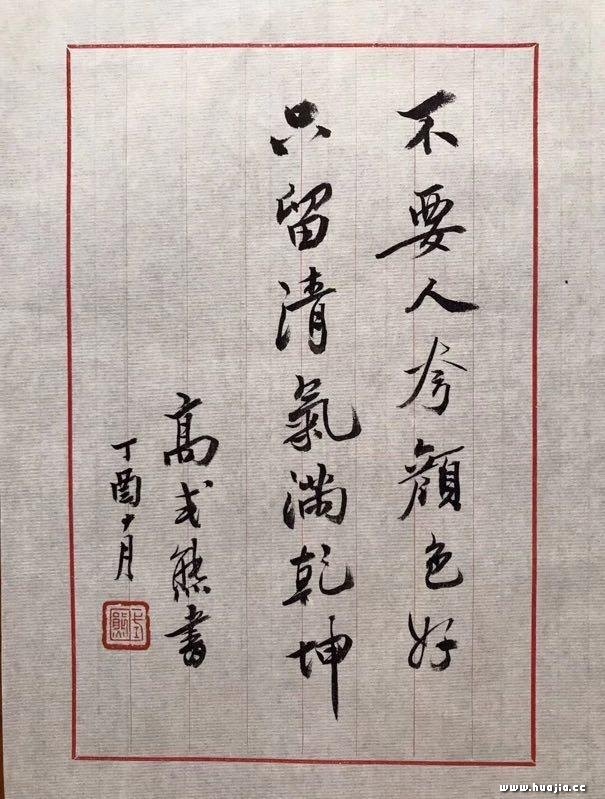 不要人夸顔色好
只留清氣滿乾坤
高式熊書
丁酉十月
式熊
www.huajia.cc